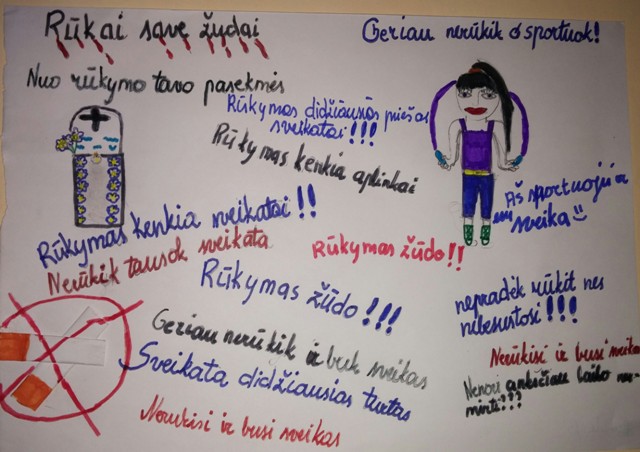 Rūkai savę žudai
Geriau nerūkik o sportuok!
Nuo rūkymo tavo pasekmės
Rūkymas didžiausias priešas
sveikatai!!!
Rūkymas kenkia aplinkai
Aš sportuoju ir
esu sveika
Rūkymas kenkia sveikatai!!
Nerūkik tausok sveikata
Rūkymas žūdo!!
Rūkymas žūdo!!!
nepradėk rūkit nes
nebesustosi!!!
Geriau nerūkik ir buk sveikas
Sveikata didžiausias turtas
Nerūkisi ir busi sveikas
Nenori ankščiau laiko nu-
mirti???
Nerukisi ir busi sveikas